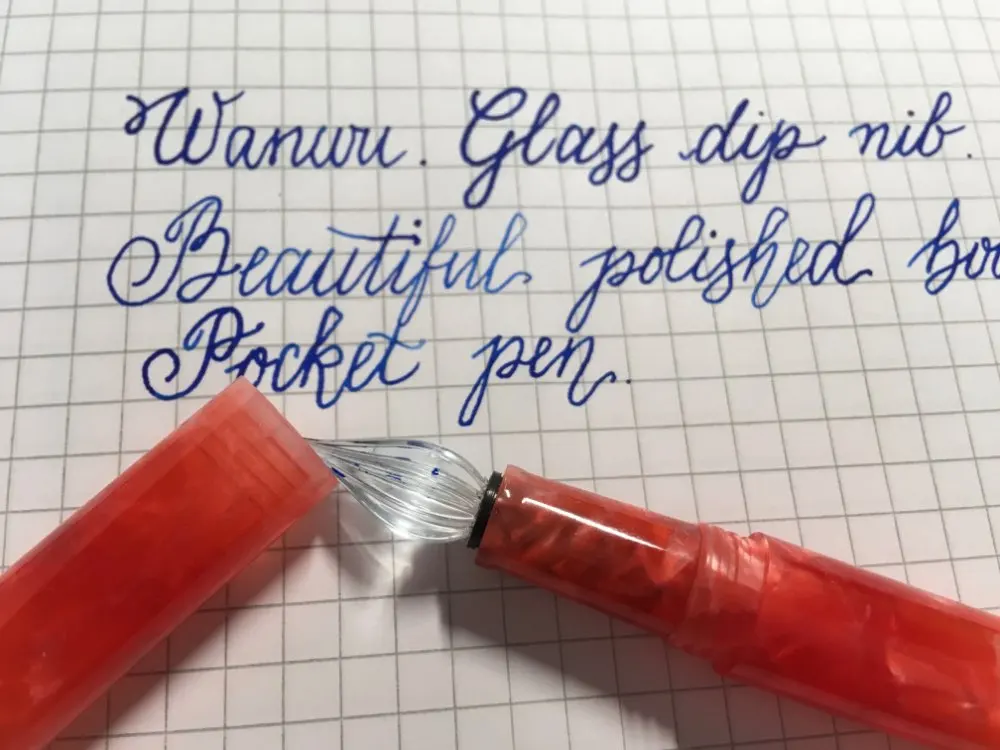 Wanwu. Glass dip nib.
Beautiful polished
Pocket pen.